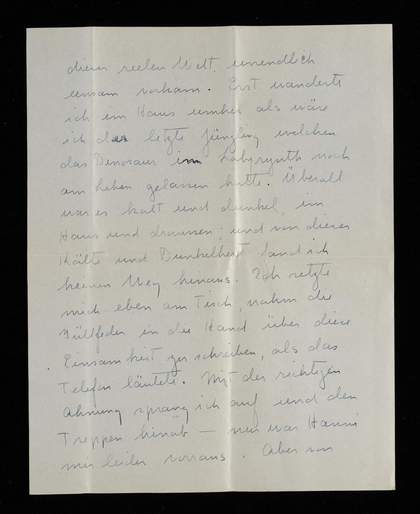 dieser reelen Welt, unendlich
einsam vorkam. Erst wanderte
ich im Haus umher als wäre
ich der letzte Jüngling welchen
das Dinosaur im Labyrynth noch
am Leben gelassen hätte. Überall
war es kalt und dunkel, im
Haus und draussen, und von dieser
Kälte und Dunkelheit fand ich
keinen Weg hinaus. Ich setzte
mich eben am Tisch, nahm die
Füllfeder in die Hand über diese
Einsamkeit zu schreiben, als das
Telefon läutete. Mit der richtigen
Ahnung sprang ich auf und den
Treppen hinab — nur war Hanni
mir leider voraus. Aber von